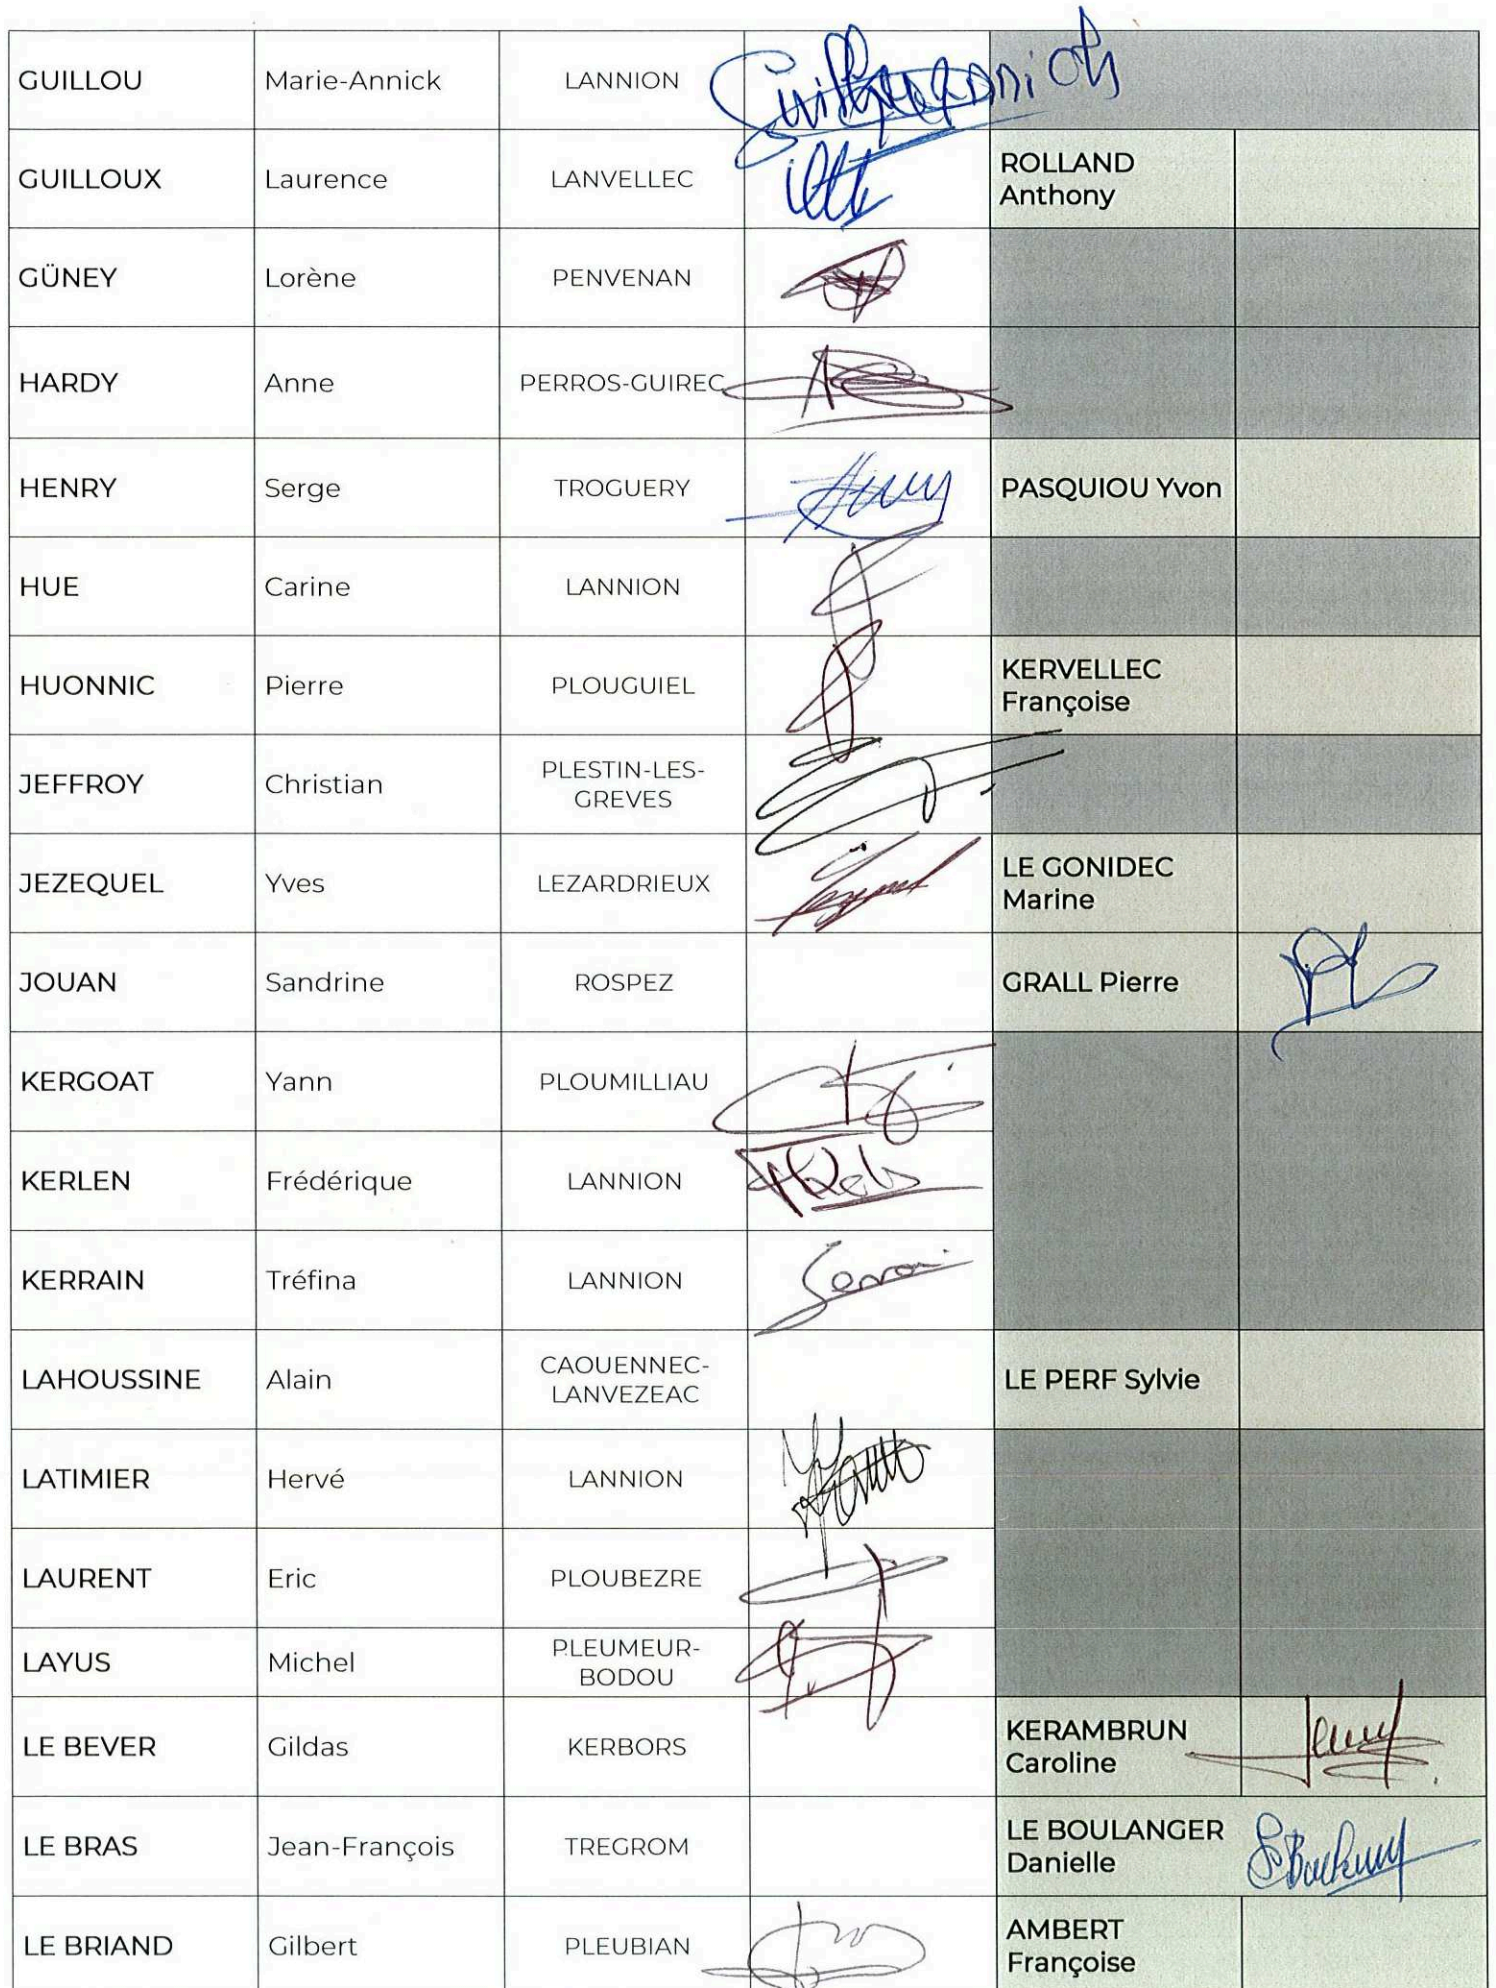 GUILLOU Marie-Annick LANNION
GUILLOUX Laurence LANVELLEC ROLLAND
Anthony
GÜNEY Lorène PENVENAN
HARDY Anne PERROS-GUIREC
HENRY Serge TROGUERY PASQUIOU Yvon
HUE Carine LANNION
HUONNIC Pierre PLOUGUIEL KERVELLEC
Françoise
JEFFROY Christian PLESTIN-LES-
GREVES
JEZEQUEL Yves LEZARDRIEUX LE GONIDEC
Marine
JOUAN Sandrine ROSPEZ GRALL Pierre
KERGOAT Yann PLOUMILLIAU
KERLEN Frédérique LANNION
KERRAIN Tréfina LANNION
LAHOUSSINE Alain CAOUENNEC-
LANVEZEAC LE PERF Sylvie
LATIMIER Hervé LANNION
LAURENT Eric PLOUBEZRE
LAYUS Michel PLEUMEUR-
BODOU
LE BEVER Gildas KERBORS KERAMBRUN
Caroline
LE BRAS Jean-François TREGROM LE BOULANGER
Danielle
LE BRIAND Gilbert PLEUBIAN AMBERT
Françoise